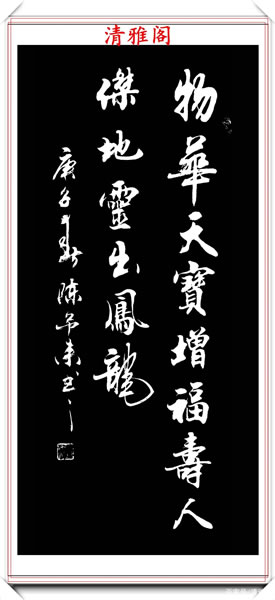 清雅阁
物華天寶增福壽人
傑地靈出鳳龍
庚子